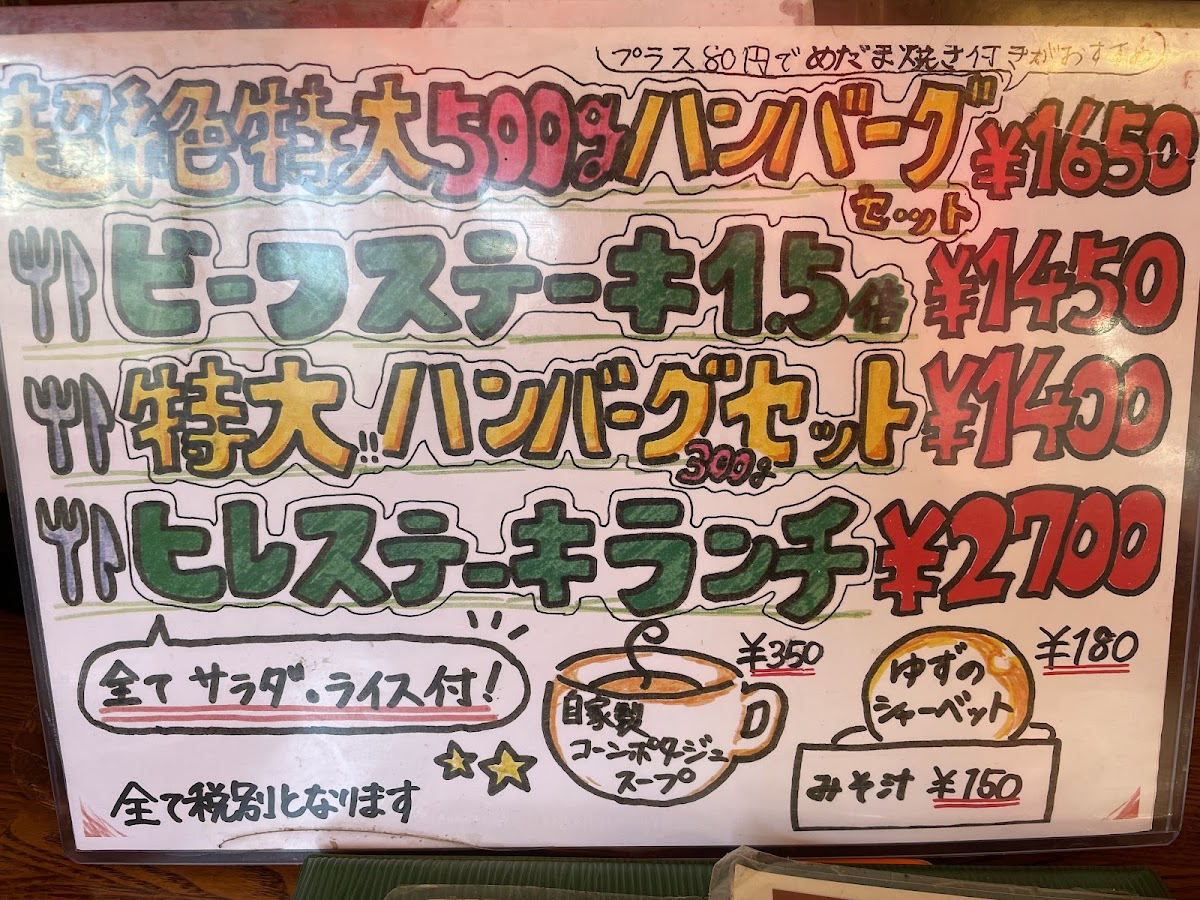 プラス80円でめだま焼き付きがおすすめ
超絶特大500gハンバーグ ¥1650
セット
ビーフステーキ1.5倍 ¥1450
特大!!ハンバーグセット ¥1400
300g
ヒレステーキランチ ¥2700
全てサラダ・ライス付!
自家製
コーンポタージュ
スープ
¥350
ゆずの
シャーベット
¥180
みそ汁 ¥150
全て税別となります